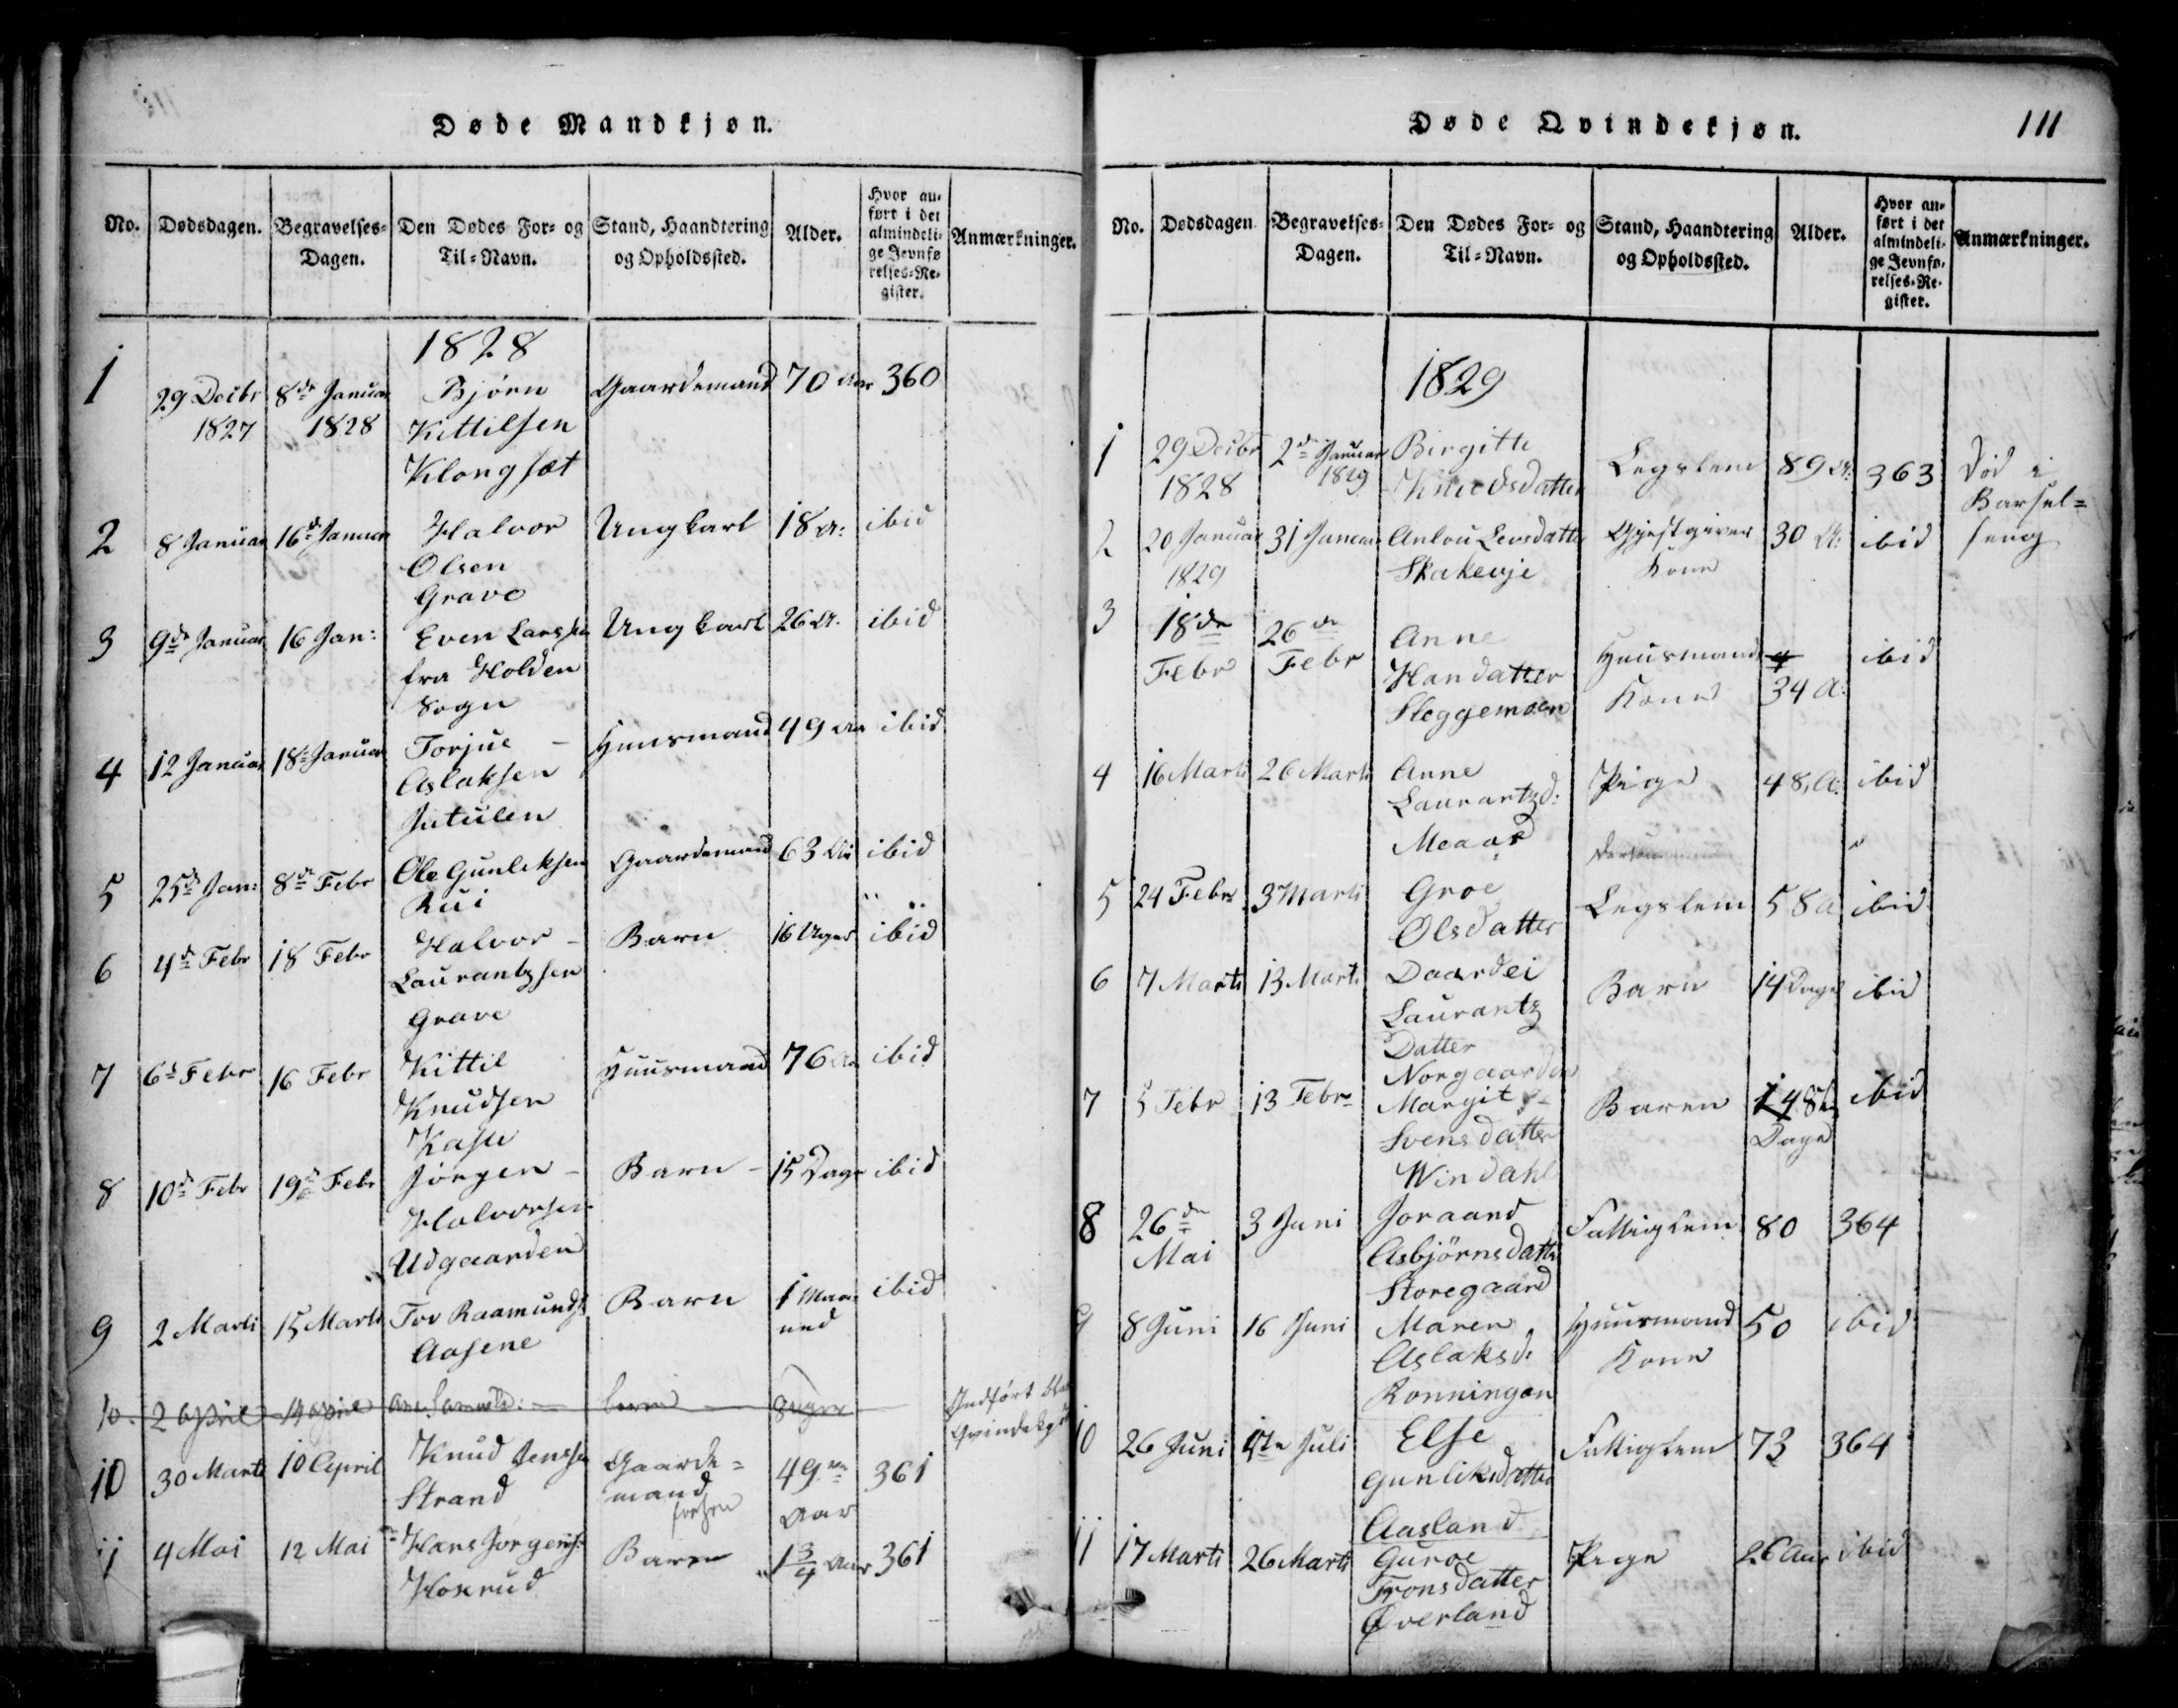 Døde Mandkjøn.
No. Dødsdagen. Begravelses-Dagen. Den Dødes For- og Til-Navn. Stand, Haandtering og Opholdssted. Alder. Hvor anført i det almindelige Jevnførelses-Register. Anmærkninger.
1828
1 29 Decbr 1827 8de Januar 1828 Bjørn Kittilsen Klongsæt Gaardemand 70 Aar 360
2 8 Januar 16de Januar Halvor Olsen Grave Ungkarl 18 A: ibid
3 9de Januar 16 Jan: Even Larssen fra Holden Sogn Ungkarl 26 A. ibid
4 12 Januar 18 Januar Torjue Aslaksen Jutulen Huusmand 49 Aar ibid
5 25de Jan: 8de Febr Ole Gunleksen Rui Gaardemand 63 Aar ibid
6 4de Febr 18 Febr Halvor Laurantzsen Grave Barn 16 Uger ibid
7 6te Febr 16 Febr Kittil Knudsen Kaste Huusmand 76 Aar ibid
8 10de Febr 19de Febr Jørgen Halvorsen Udgaarden Barn 15 Dage ibid
9 2 Marti 15 Marti Tov Raamunds: Aasene Barn 1 Maaned ibid
10. 2 April 14 April Indført blandt
10 30 Marti 10 April Knud Jenssen Strand Gaardemand 49 Aar 361
11 4 Mai 12 Mai Hans Jørgens: Hoxrud Barn 1 3/4 Aar 361
Døde Qvindekjøn.
111
No. Dødsdagen Begravelses-Dagen. Den Dødes For- og Til-Navn. Stand, Haandtering og Opholdssted. Alder. Hvor anført i det almindelige Jevnførelses-Register. Anmærkninger.
1829
1 29 Decbr 1828 2de Januar 1829 Birgitte Knudsdatter Legslem 89 A: 363
2 20 Januar 1829 31 Januar Anlou Levsdatter Skakevje Gjestgiver Kone 30 A: ibid Død i Barselseng
3 18de Febr 26de Febr Anne Hansdatter Steggemoen Huusmands Kone 34 A: ibid
4 16 Marti 26 Marti Anne Laurantzd: Moaas Pige 48 A: ibid
5 24 Febr 3 Marti Groe Olsdatter Legslem 58 A ibid
6 7 Marti 13 Marti Daardei Laurantz Datter Norgaarden Barn 14 Dage ibid
7 5 Febr 13 Febr Margit Svensdatter Windahl Baren Dage ibid
8 26de Mai 3 Juni Joraand Asbjørnsdatter Storegaard Fattiglem 80 364
9 8 Juni 16 Juni Maren Aslaksd: Rønningen Huusmand Kone 50 ibid
10 26 Juni Juli Else Gunliksdatter Aasland Fattiglem 73 364
11 17 Marti 26 Marti Guroe Tronsdatter Øverland Pige 26 Aar ibid